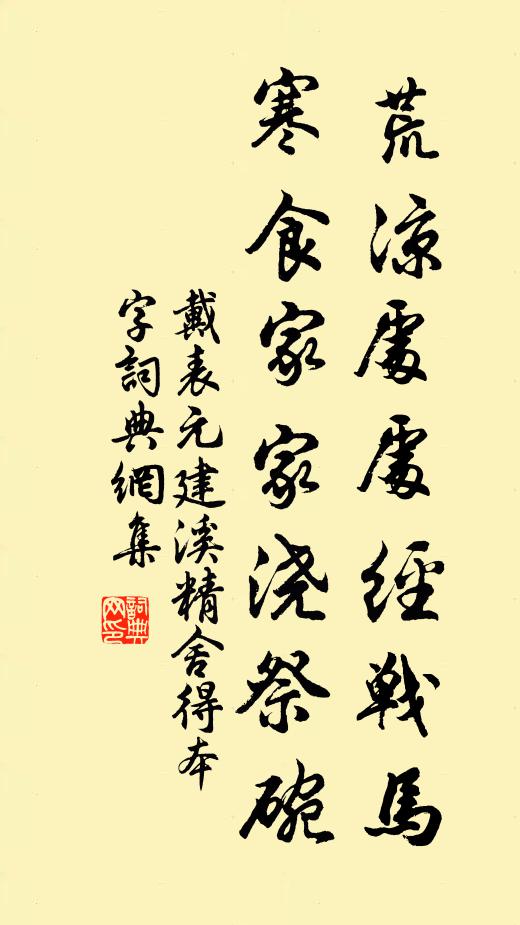 荒凉處處經戰馬
寒食家家浇祭碗
戴表元建溪精舍得本
字詞典網集
詞典
网印